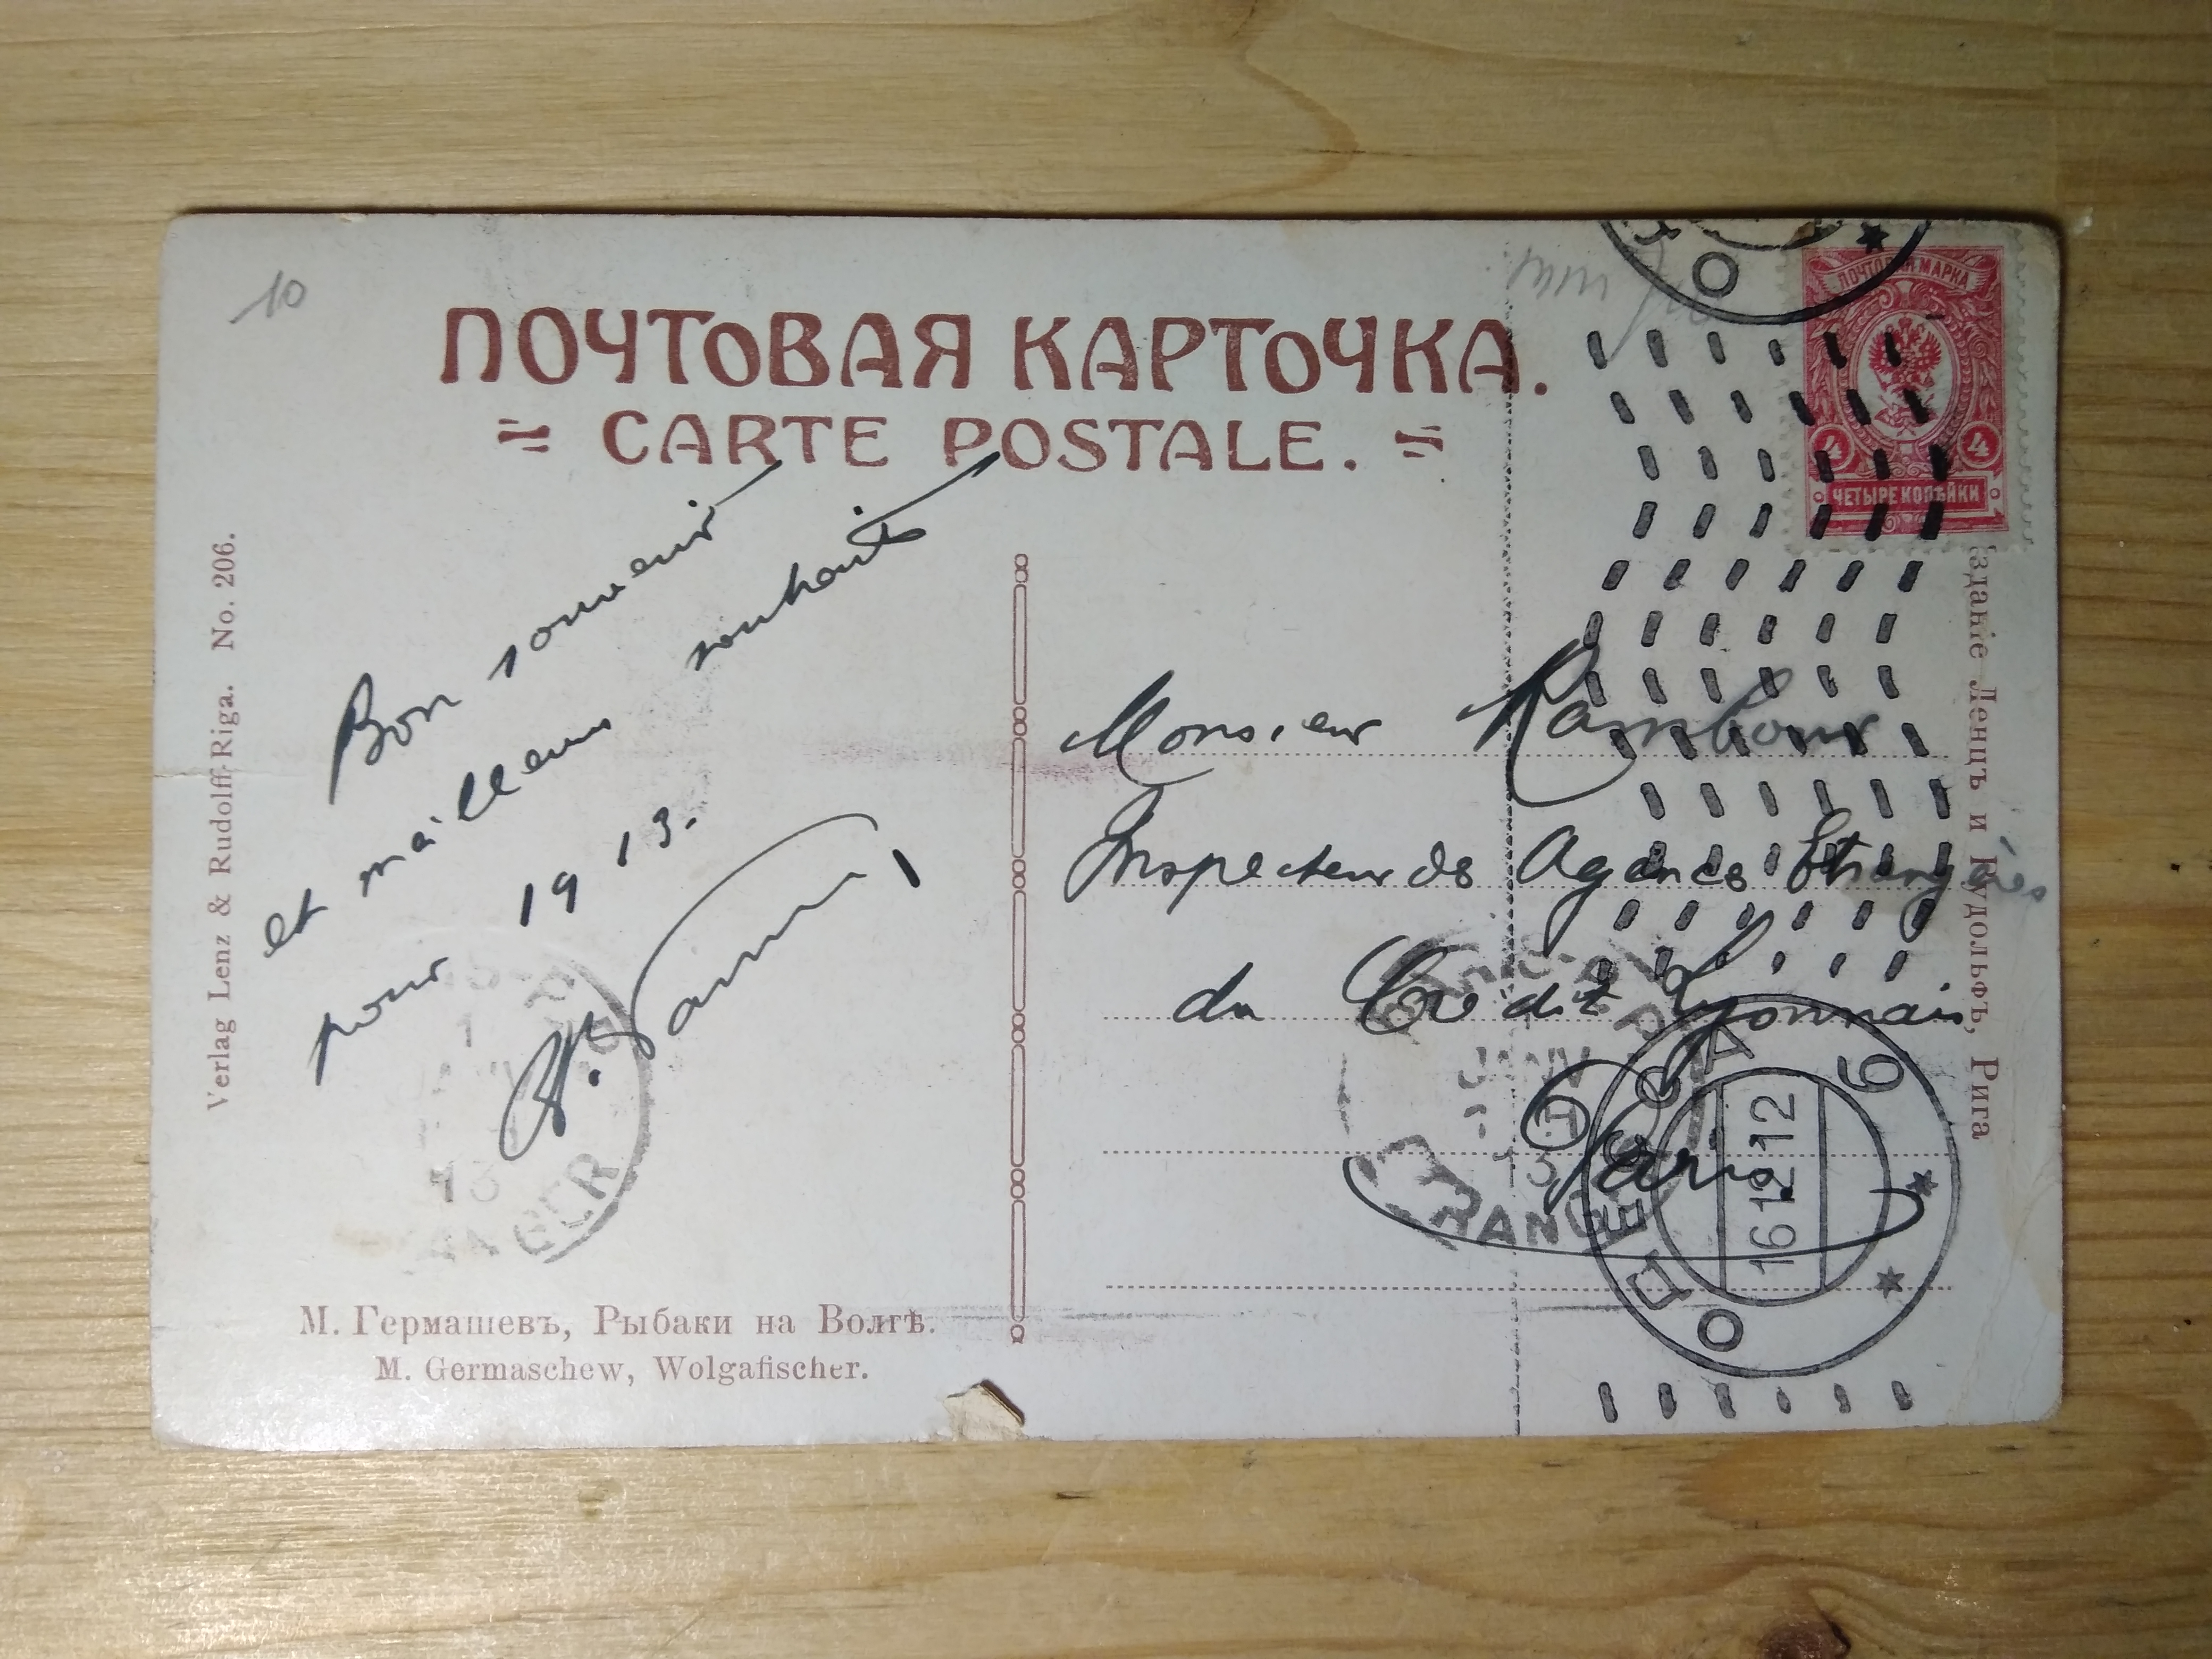 10
ПОЧТОВАЯ КАРТОЧКА.
= CARTE POSTALE. =
ПОЧТОВАЯ МАРКА
4 4
ЧЕТЫРЕ КОПѢЙКИ
Verlag Lenz & Rudolff-Riga. No. 206.
Bon souvenir
et meilleurs souhaits
pour 1913.
Monsieur Rambour
Inspecteur des Agences Etrangères
du Crédit Lyonnais
Paris
здание Ленцъ и Рудольфъ, Рига
JANV
13
ETRANGER
ОДЕССА
16 12 12
М. Гермашевъ, Рыбаки на Волгѣ.
M. Germaschew, Wolgafischer.